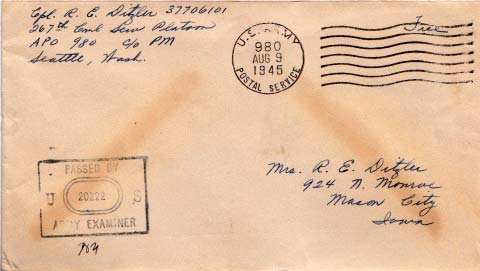 Cpl. R. E. Ditzler 37706101
267th Cml Serv Platoon
APO 980 c/o PM
Seattle, Wash.
U.S. ARMY
980
AUG 9
1945
POSTAL SERVICE
Free
PASSED BY
U 20222 S
ARMY EXAMINER
Mrs. R. E. Ditzler
924 N. Monroe
Mason City
Iowa